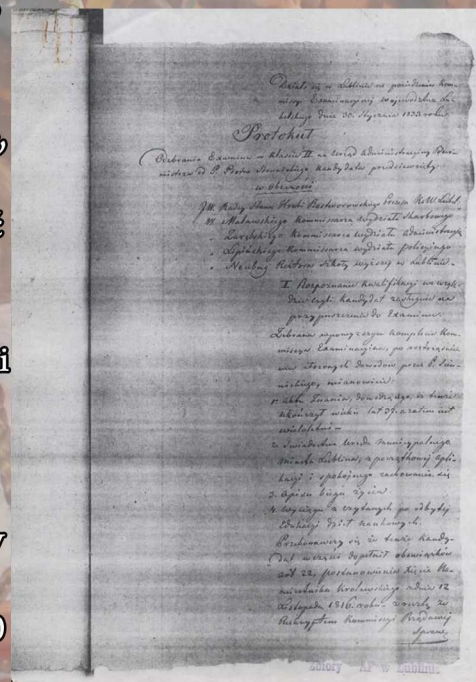 Działo się w Lublinie na posiedzeniu Kom-
missyi Examinacyjnej Województwa Lu-
belskiego dnia 30. Stycznia 1833 roku
Protokuł
Odebrania Examinu w klassie II na urząd administracyjny Burm-
mistrza od P. Piotra kandydata przedstawiony
w obecności
JW. Radcy Stanu Hrabi Bochworowskiego Prezesa K. W. Lubel.
W. Malawskiego Kommissarza wydziału Skarbowego
Kommissarza wydziału administracyj.
" Kommissarza wydziału policyjnego
" Neubug Rektora Szkoły wyższej w Lublinie
I Rozpoznanie kwalifikacyi we wzglę-
dzie czyli kandydat zasługuje na
przypuszczenie do Examinu.
Zebrana w komplecie Kom-
missya Examinacyjna, po roztrząśnie-
niu złożonych dowodów przez P.
mianowicie:
1. aktu Znania, dowodzącego, iż tenże
ukończył wieku lat 37. a zatem jest
wieloletni
2. Świadectwa Urzędu municypalnego
miasta Lublina, z początkowej apli-
kacyi i spokojnego zachowania się
3. Opisu biegu życia
4. Wyciągu z czytanych po odbytej
Edukacyi dzieł naukowych.
Przekonawszy się że tenże kandy-
dat w części dopełnił obowiązków
art 22, postanowienia Xięcia Na-
miestnika Królewskiego z dnia 12
Listopada 1816. roku. zważyć
Reskryptem Kommissyi Rządowej
Spraw
Zbiory AP w Lublinie